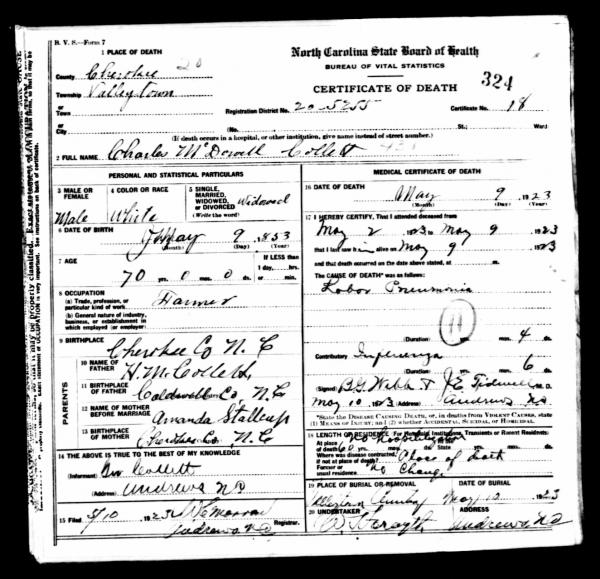 R. V. S.—Form 7
1 PLACE OF DEATH
North Carolina State Board of Health
BUREAU OF VITAL STATISTICS
CERTIFICATE OF DEATH
324
County Cherokee 20
Township Valleytown
or
Town
or
City
Registration District No. 20-5255 Certificate No. 18
(No. St.; Ward)
(If death occurs in a hospital, or other institution, give name instead of street number.)
2 FULL NAME Charles McDowell Collett
PERSONAL AND STATISTICAL PARTICULARS
3 MALE OR FEMALE Male
4 COLOR OR RACE White
5 SINGLE, MARRIED, WIDOWED, OR DIVORCED (Write the word) Widowed
6 DATE OF BIRTH May 9 1853
(Month) (Day) (Year)
7 AGE 70 yrs 0 mos 0 ds.
If LESS than
1 day, hrs.
or min.
8 OCCUPATION
(a) Trade, profession, or
particular kind of work Farmer
(b) General nature of industry,
business, or establishment in
which employed (or employer)
9 BIRTHPLACE Cherokee Co N. C
PARENTS
10 NAME OF FATHER H. M. Collett
11 BIRTHPLACE OF FATHER Caldwell Co, N. C
12 NAME OF MOTHER BEFORE MARRIAGE Amanda Stallcup
13 BIRTHPLACE OF MOTHER Cherokee Co. N. C
14 THE ABOVE IS TRUE TO THE BEST OF MY KNOWLEDGE
(Informant) Collett
(Address) Andrews N C
15 Filed 5/10 1923
Andrews N C Registrar.
MEDICAL CERTIFICATE OF DEATH
16 DATE OF DEATH May 9 1923
(Month) (Day) (Year)
17 I HEREBY CERTIFY, That I attended deceased from
May 2 1923 to May 9 1923
that I last saw h alive on May 9 1923
and that death occurred on the date above stated, at m.
The CAUSE OF DEATH* was as follows:
Lobar Pneumonia
(Duration) yrs. mos. 4 ds.
Contributory Influenza
(Duration) yrs. mos. 6 ds.
(Signed) B. G. Webb & J E Tidwell M. D.
May 10 1923 (Address) Andrews N C
*State the DISEASE CAUSING DEATH, or, in deaths from VIOLENT CAUSES, state
(1) MEANS OF INJURY; and (2) whether ACCIDENTAL, SUICIDAL, or HOMICIDAL.
18 LENGTH OF RESIDENCE (For Hospitals, Institutions, Transients or Recent Residents)
At place
of death 60 yrs. mos. ds. State yrs. mos. ds.
Where was disease contracted,
if not at place of death? Place of death
Former or
usual residence No Change
19 PLACE OF BURIAL OR REMOVAL DATE OF BURIAL
May 10 1923
20 UNDERTAKER ADDRESS
Forsyth Andrews N C